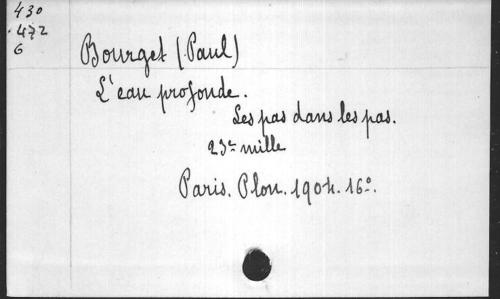 430
.472
6
Bourget (Paul)
L'eau profonde.
Les pas dans les pas.
23e mille
Paris. Plon. 1904. 16°.